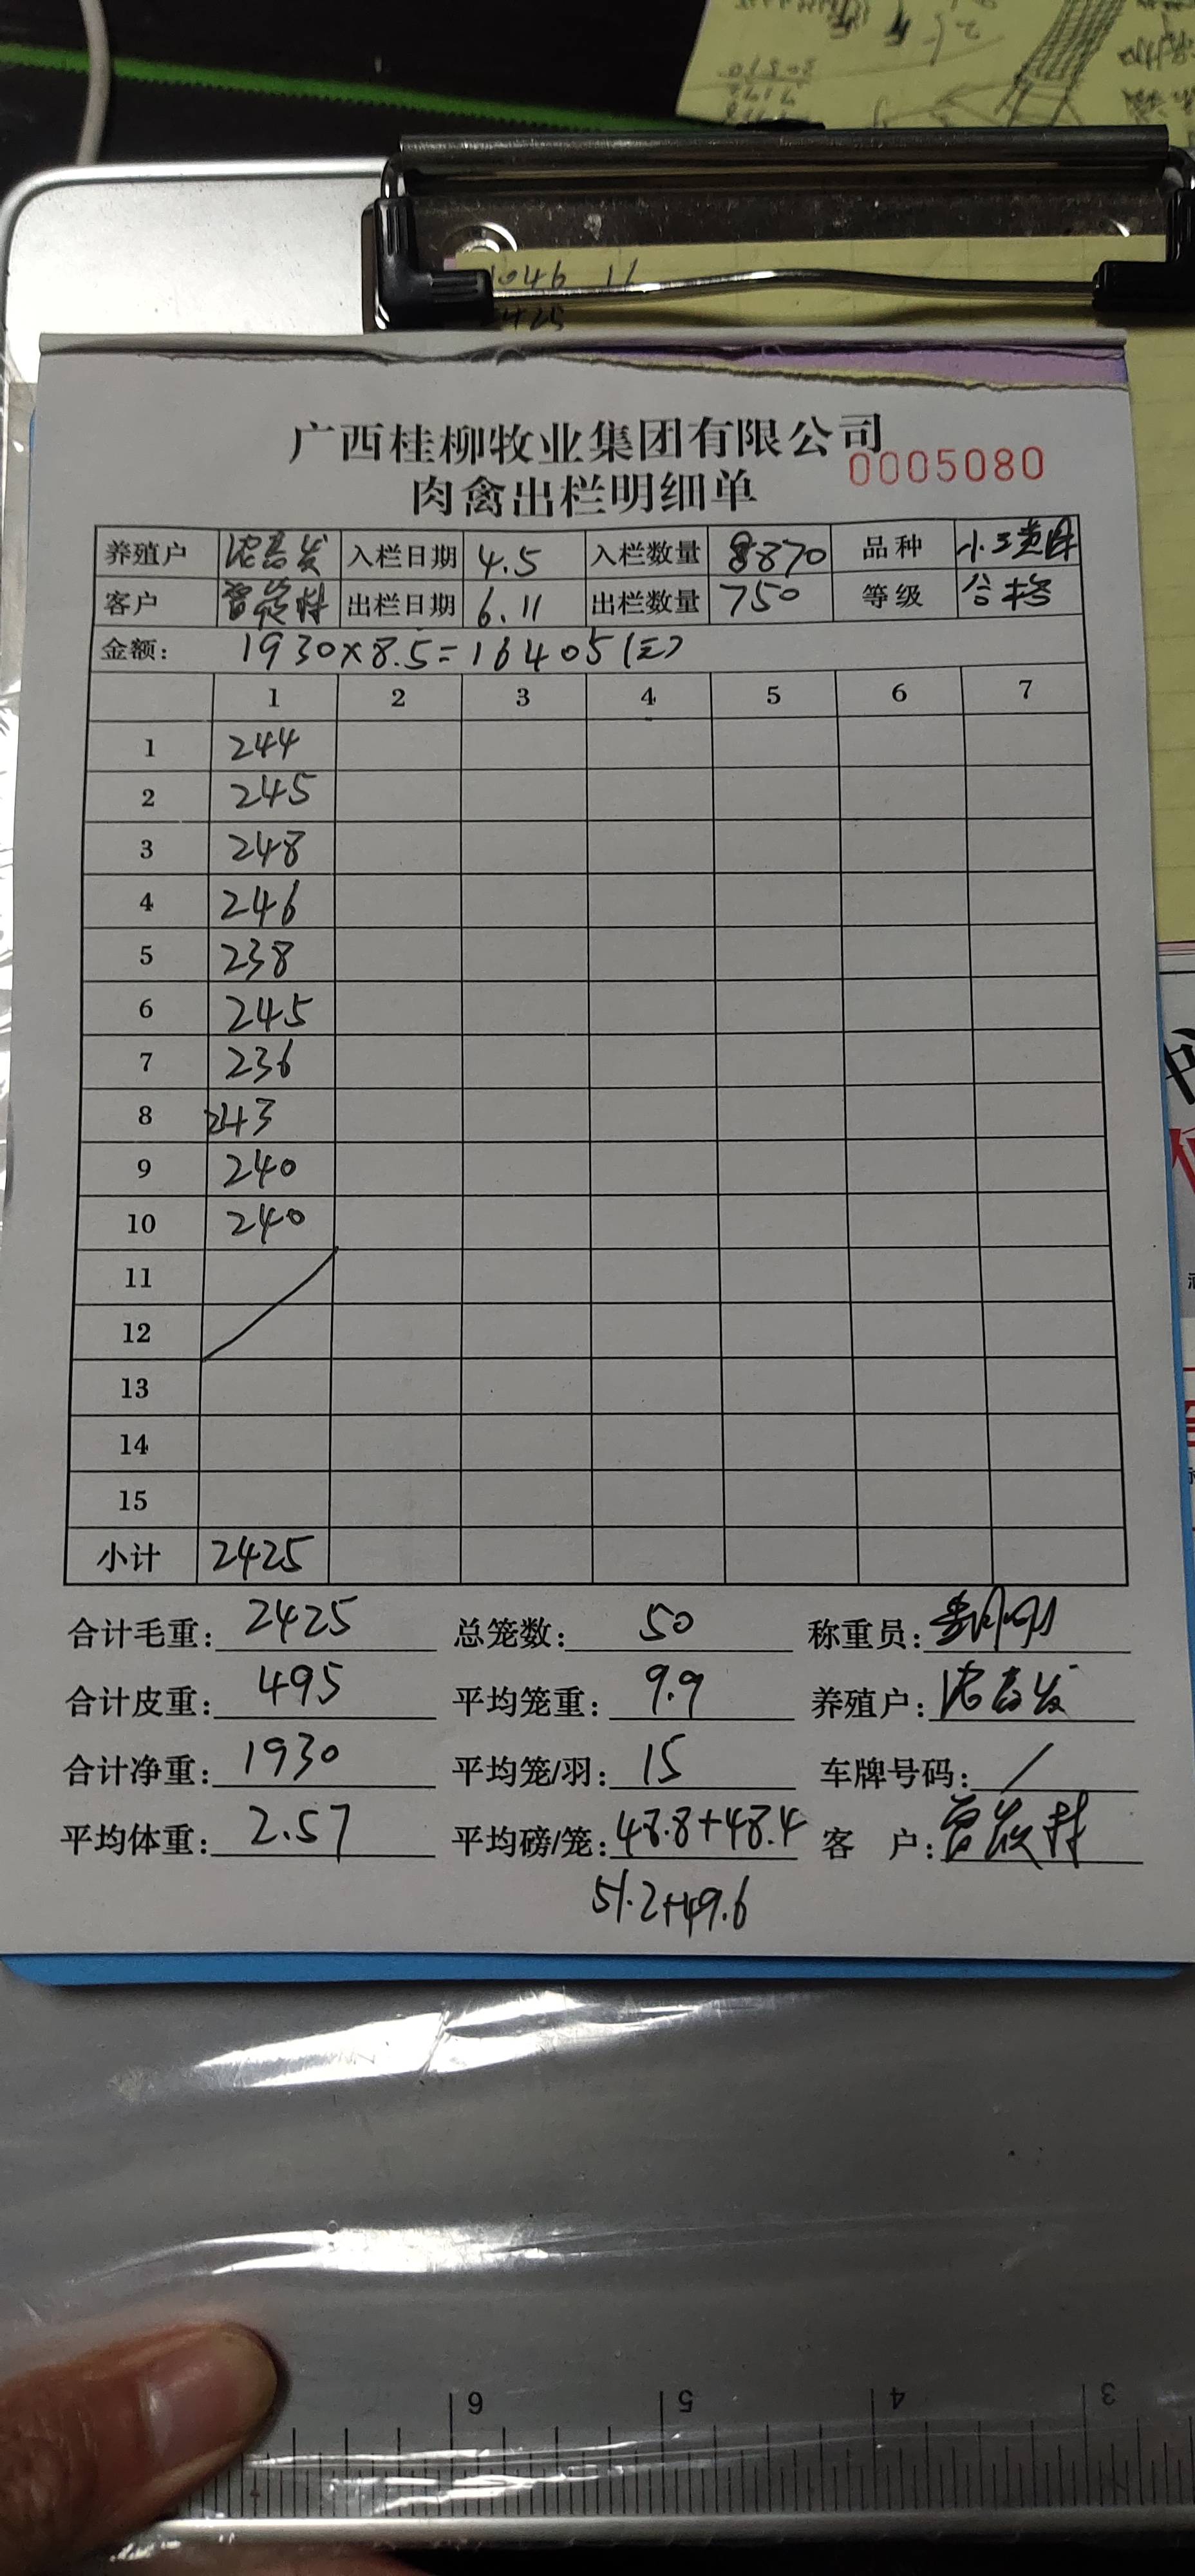 1046 11
2425
广西桂柳牧业集团有限公司
0005080
肉禽出栏明细单
养殖户 入栏日期 4.5 入栏数量 8870 品种
客户 出栏日期 6.11 出栏数量 750 等级 合格
金额： 1930×8.5=16405(元)
1 2 3 4 5 6 7
1 244
2 245
3 248
4 246
5 238
6 245
7 236
8 243
9 240
10 240
11
12
13
14
15
小计 2425
合计毛重：2425 总笼数：50 称重员：
合计皮重：495 平均笼重：9.9 养殖户：
合计净重：1930 平均笼/羽：15 车牌号码：/
平均体重：2.57 平均磅/笼：48.8+48.4 客 户：
51.2+49.6
6 5 4 3